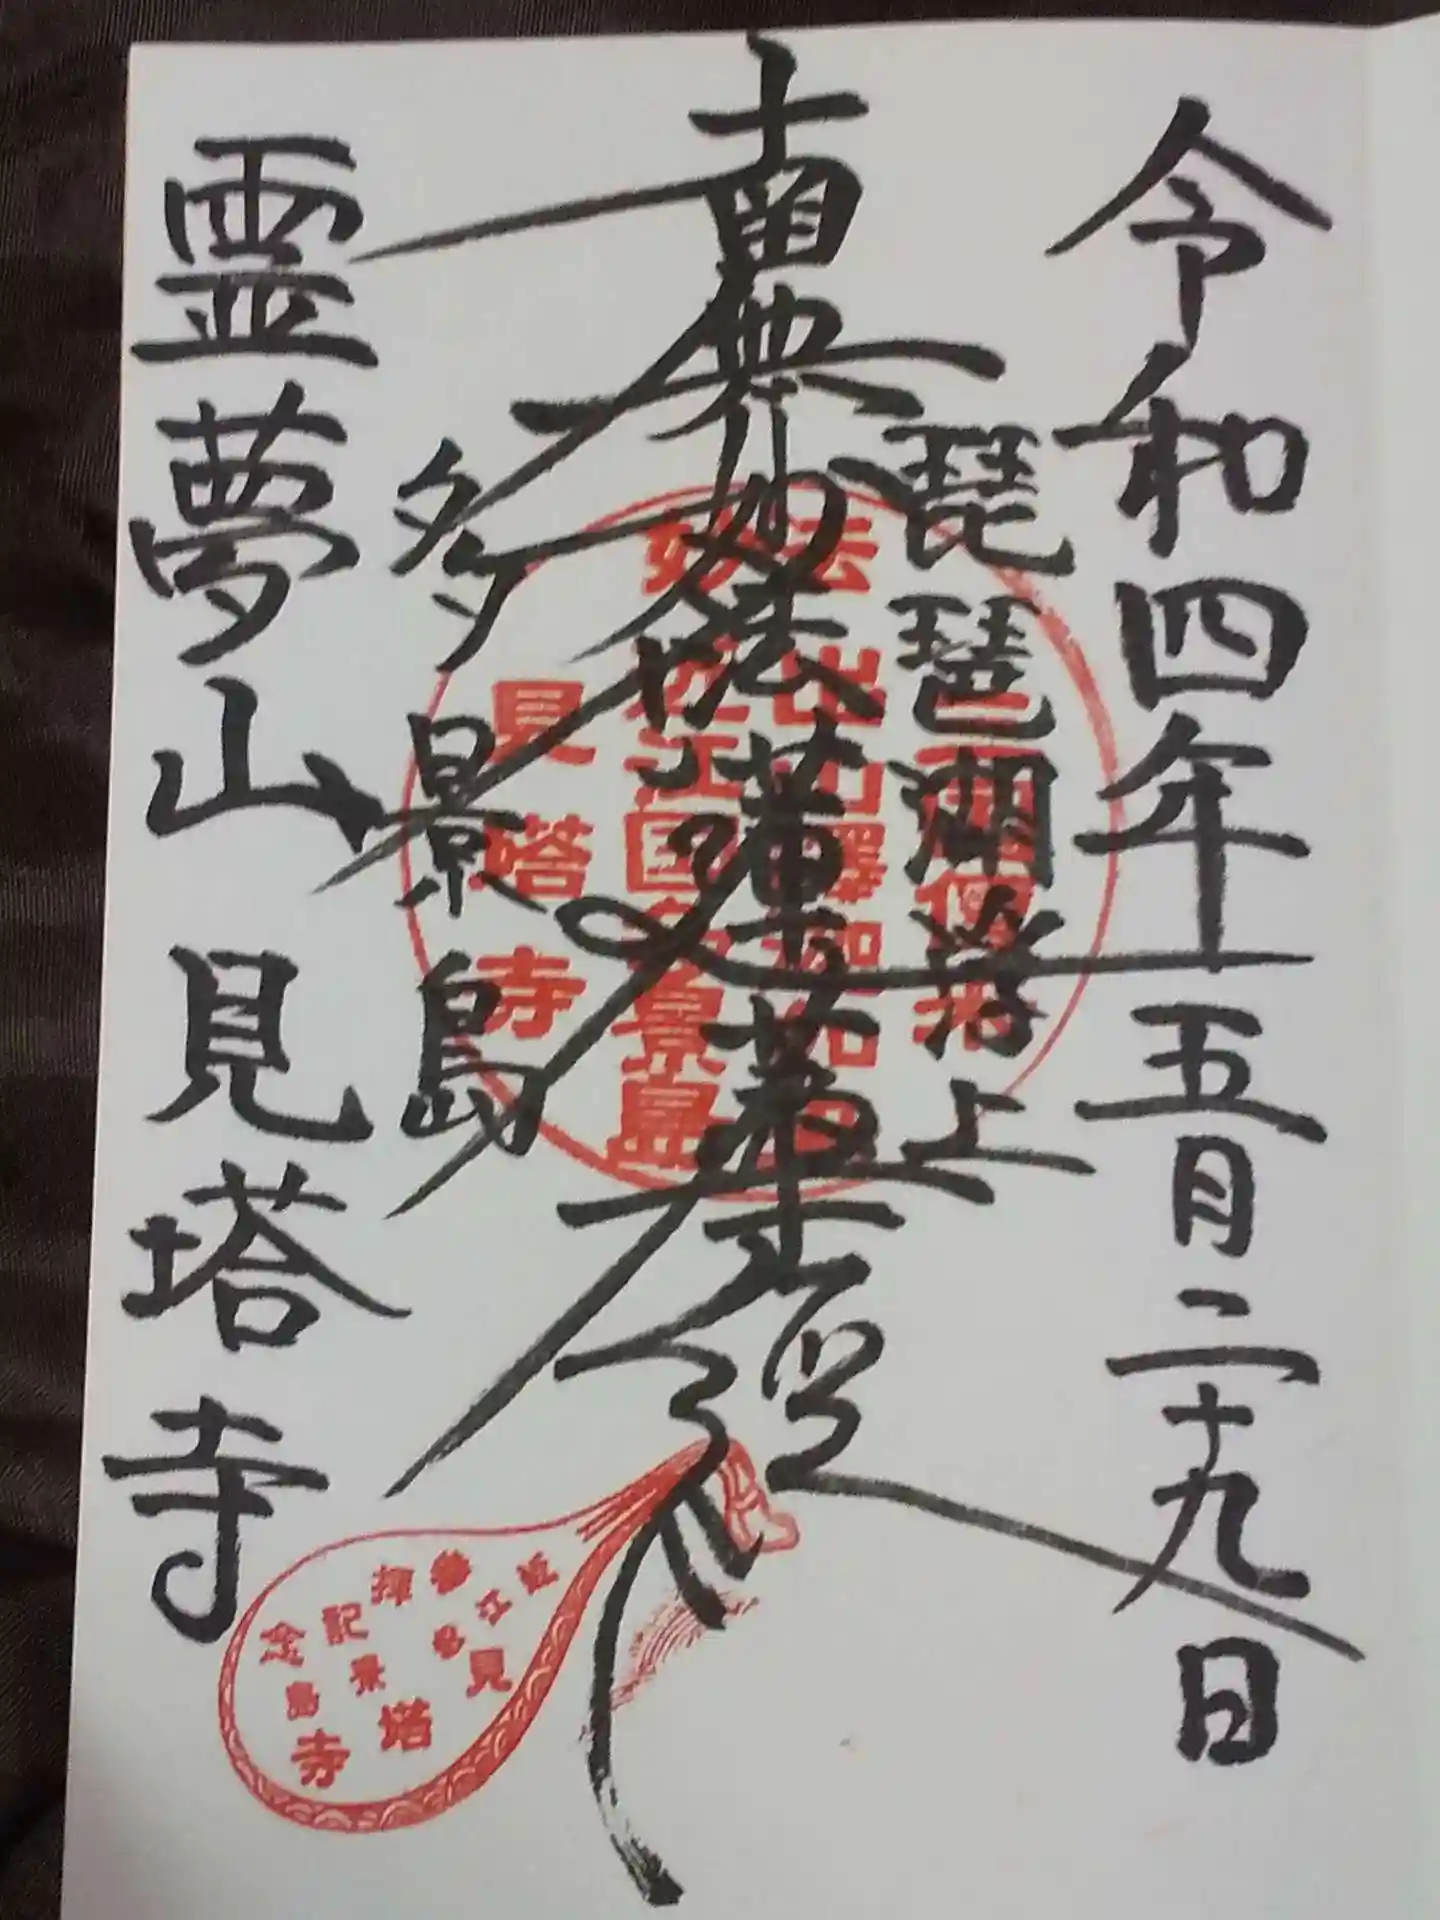 令和四年五月二十九日
琵琶湖洋上
南無妙法蓮華経
多景島
霊夢山見塔寺
妙法
出山釋迦
近江国多景島
見塔寺
参拝記念
近江多景島
見塔寺